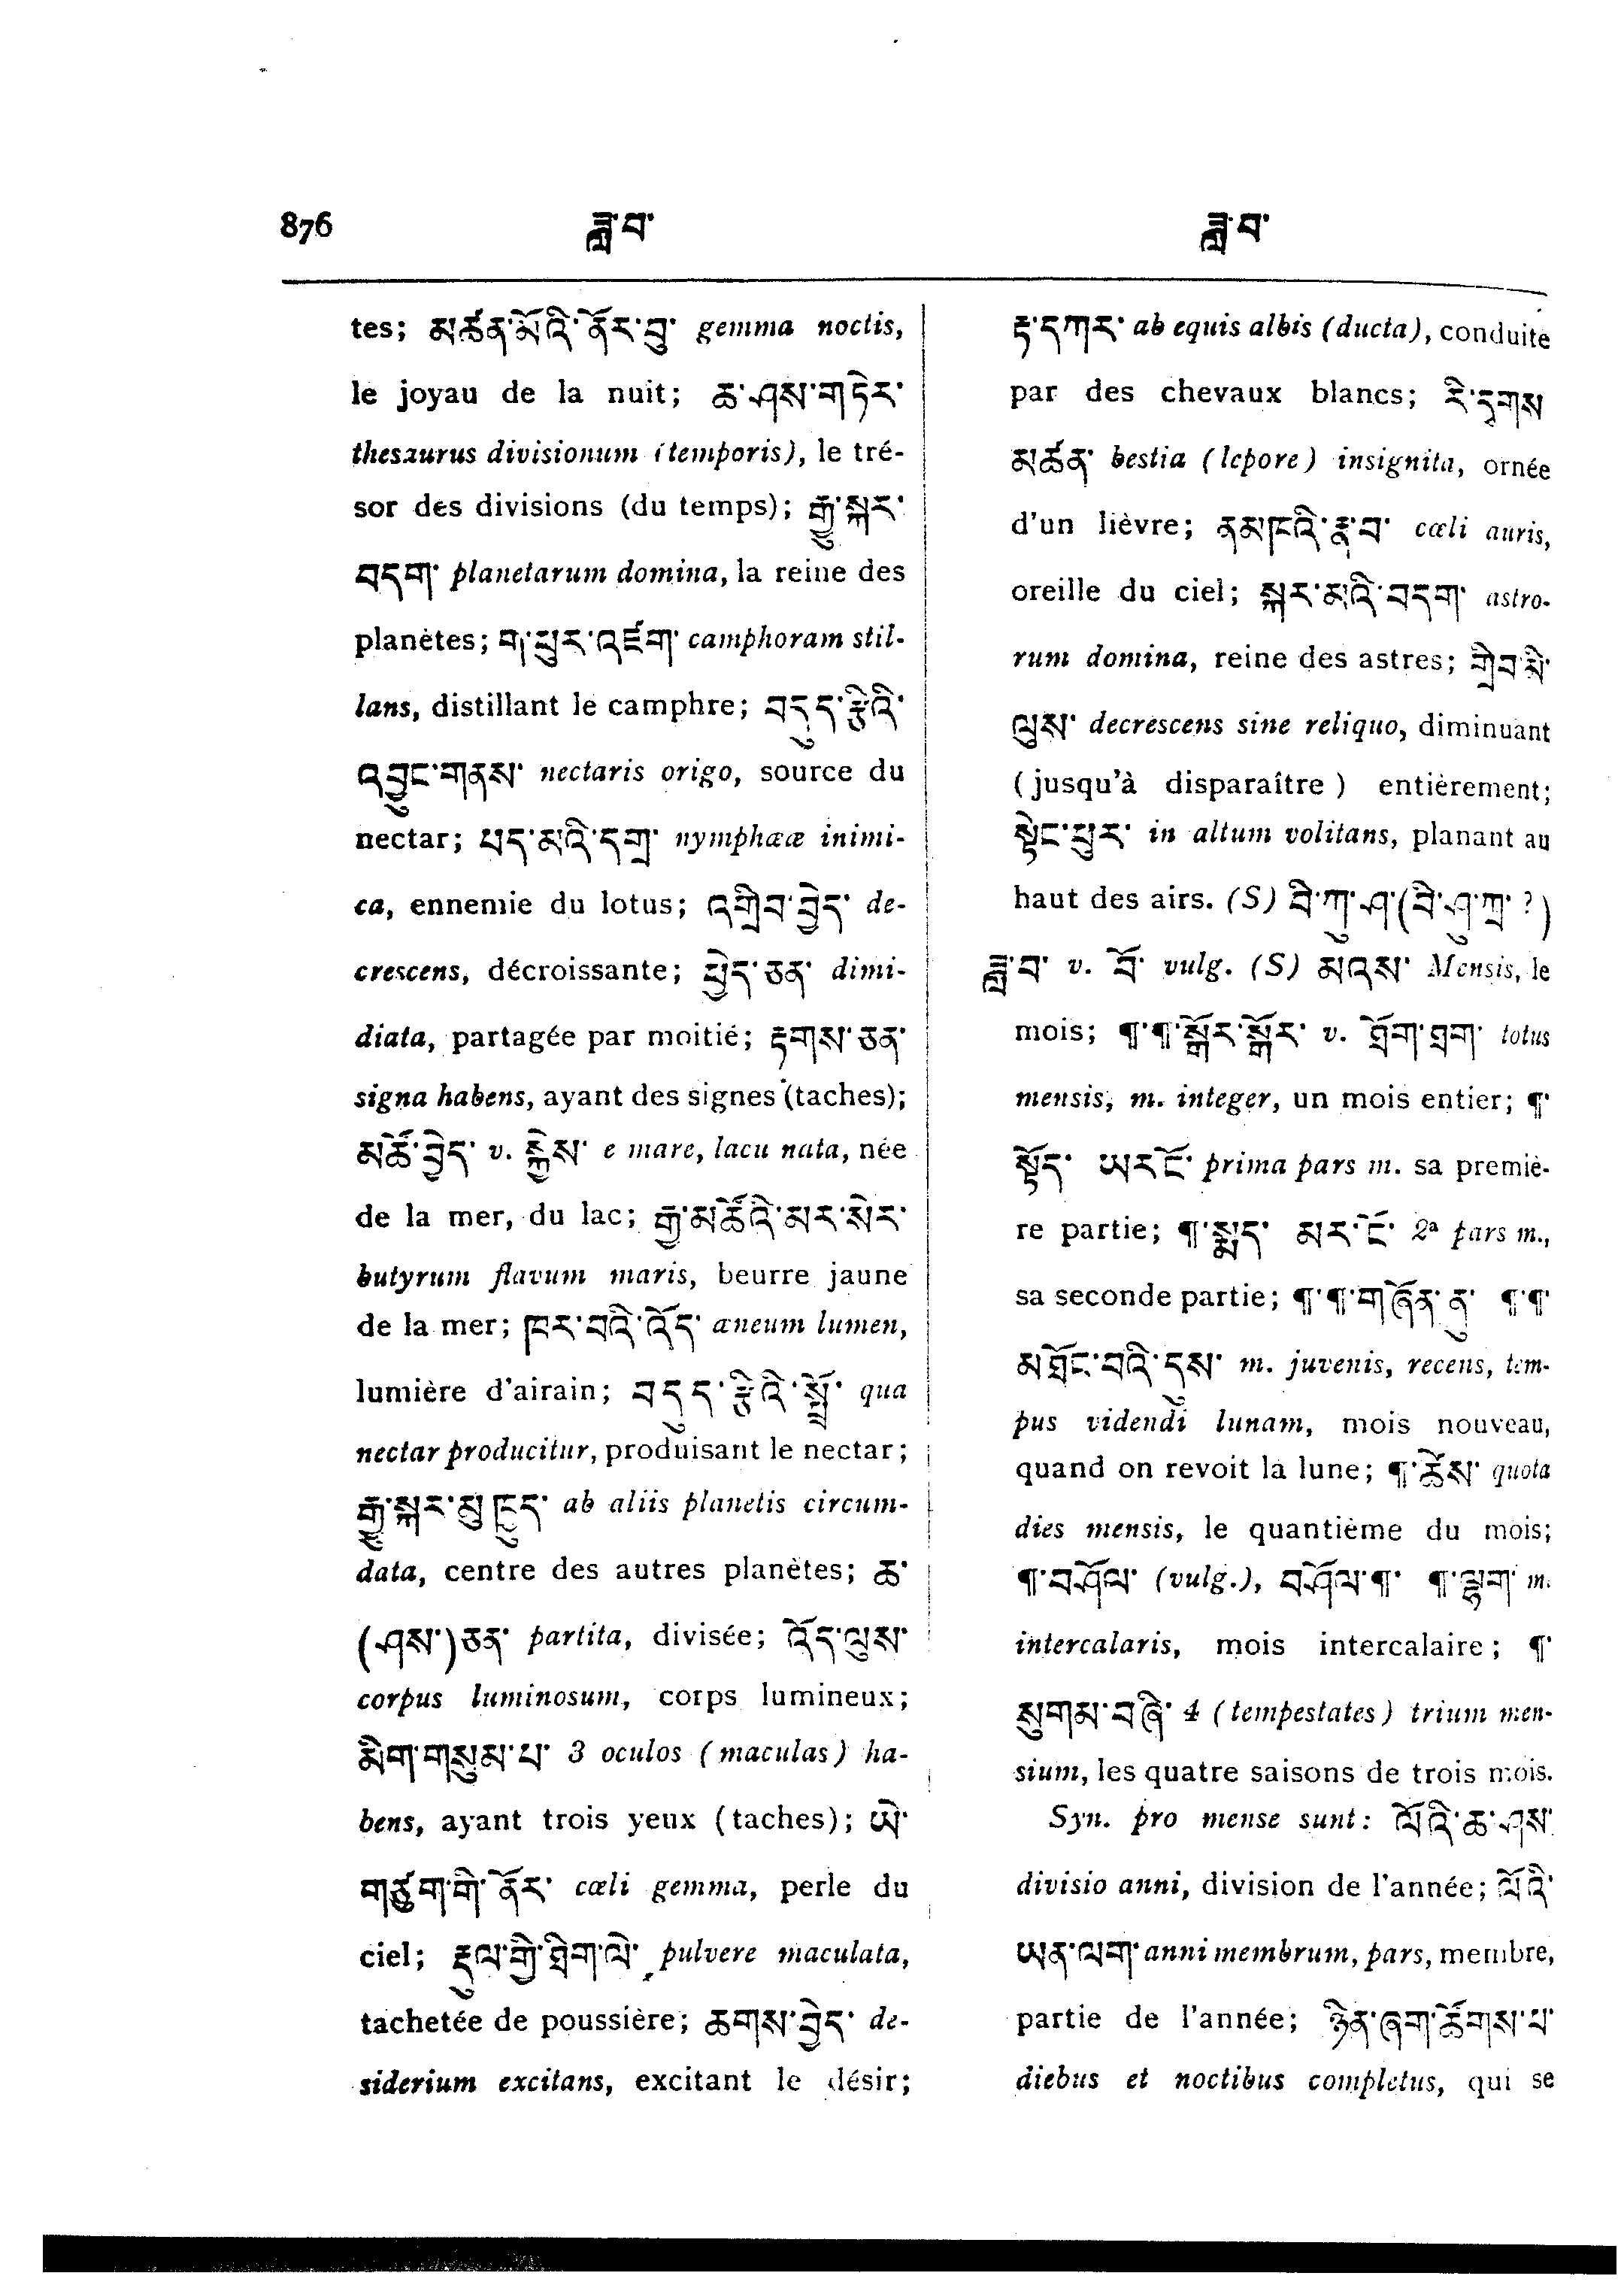 876 ཟླ་བ་ ཟླ་བ་
tes; མཚན་མོའི་ནོར་བུ་ gemma noctis,
le joyau de la nuit; ཆ་ཤས་གཏེར་
thesaurus divisionum (temporis), le tré-
sor des divisions (du temps); རྒྱུ་སྐར་
བདག་ planetarum domina, la reine des
planètes; ག་པུར་འཛག་ camphoram stil-
lans, distillant le camphre; བདུད་རྩིའི་
འབྱུང་གནས་ nectaris origo, source du
nectar; པད་མའི་དགྲ་ nymphææ inimi-
ca, ennemie du lotus; འགྲིབ་བྱེད་ de-
crescens, décroissante; ཕྱེད་ཅན་ dimi-
diata, partagée par moitié; རྟགས་ཅན་
signa habens, ayant des signes (taches);
མཚོ་བྱེད་ v. སྐྱེས་ e mare, lacu nata, née
de la mer, du lac; རྒྱ་མཚོའི་མར་སེར་
butyrum flavum maris, beurre jaune
de la mer; ཁར་བའི་འོད་ æneum lumen,
lumière d'airain; བདུད་རྩིའི་སྤྲོ་ qua
nectar producitur, produisant le nectar;
རྒྱུ་སྐར་མུ་ཁྱུད་ ab aliis planetis circum-
data, centre des autres planètes; ཆ་
(ཤས་)ཅན་ partita, divisée; འོད་ལུས་
corpus luminosum, corps lumineux;
མིག་གསུམ་པ་ 3 oculos (maculas) ha-
bens, ayant trois yeux (taches); ཡེ་
གཙུག་གི་ནོར་ cœli gemma, perle du
ciel; རྡུལ་གྱི་ཐིག་ལེ་ pulvere maculata,
tachetée de poussière; ཆགས་བྱེད་ de-
siderium excitans, excitant le désir;
རྟ་དཀར་ ab equis albis (ducta), conduite
par des chevaux blancs; རི་དྭགས
མཚན་ bestia (lepore) insignita, ornée
d'un lièvre; ནམ་ཁའི་རྣ་བ་ cœli auris,
oreille du ciel; སྐར་མའི་བདག་ astro-
rum domina, reine des astres; གྲིབ་མི་
ལུས་ decrescens sine reliquo, diminuant
(jusqu'à disparaître) entièrement;
སྟེང་ཕུར་ in altum volitans, planant au
haut des airs. (S) བི་ཀུ་ཤ་(བི་ཤུ་ཀྲ་?)
ཟླ་བ་ v. བོ་ vulg. (S) མཱས་ Mensis, le
mois; ¶་¶་སྒོར་སྒོར་ v. ཐོག་ཐག་ totus
mensis, m. integer, un mois entier; ¶་
སྟོད་ ཡར་ངོ་ prima pars m. sa premiè-
re partie; ¶་སྨད་ མར་ངོ་ 2ª pars m.,
sa seconde partie; ¶་¶་གཞོན་ནུ་ ¶་¶་
མཐོང་བའི་དུས་ m. juvenis, recens, tem-
pus videndi lunam, mois nouveau,
quand on revoit la lune; ¶་ཚེས་ quota
dies mensis, le quantième du mois;
¶་བཤོལ་ (vulg.), བཤོལ་¶་ ¶་ལྷག་ m.
intercalaris, mois intercalaire; ¶་
སུགམ་བཞི་ 4 (tempestates) trium men-
sium, les quatre saisons de trois mois.
Syn. pro mense sunt: ལོའི་ཆ་ཤས་
divisio anni, division de l'année; ལོའི་
ཡན་ལག་ anni membrum, pars, membre,
partie de l'année; ཉིན་ཞག་ཚོགས་པ་
diebus et noctibus completus, qui se